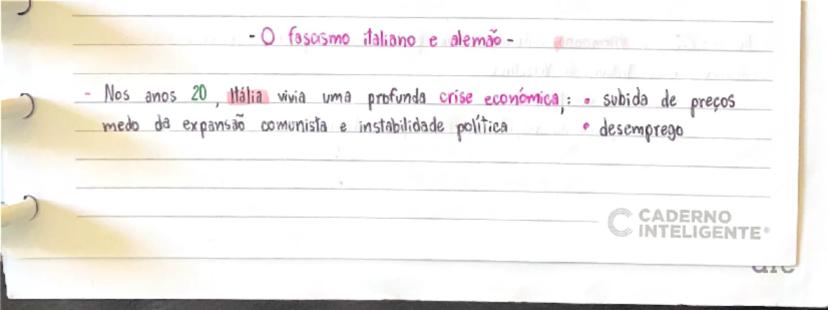 - O fascismo italiano e alemão -
- Nos anos 20, Itália vivia uma profunda crise económica,: • subida de preços
medo da expansão comunista e instabilidade política • desemprego
CADERNO
INTELIGENTE®